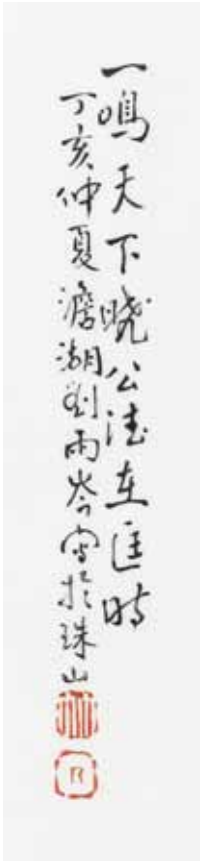 一鳴天下曉公德在匡時
丁亥仲夏澹湖劉雨岑寫於珠山